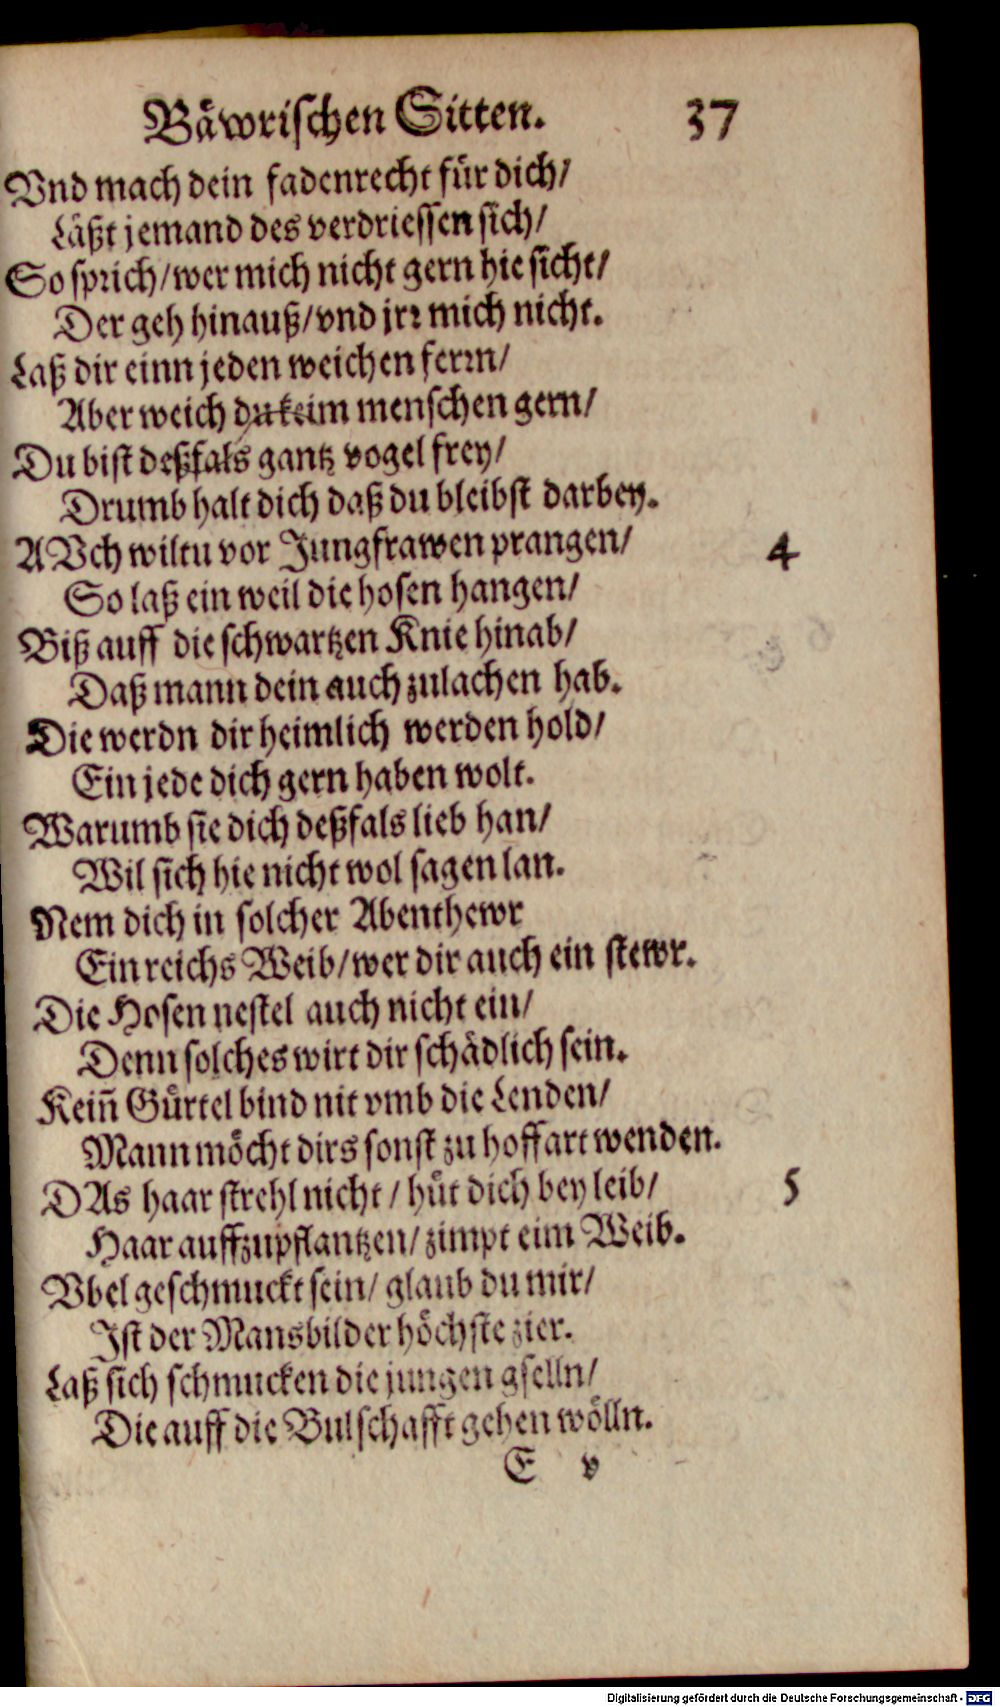 Bäwrischen Sitten. 37
Vnd mach dein fadenrecht für dich/
Läßt jemand des verdriessen sich/
So sprich/wer mich nicht gern hie sicht/
Der geh hinauß/vnd jrꝛ mich nicht.
Laß dir einn jeden weichen ferꝛn/
Aber weich du keim menschen gern/
Du bist deßfals gantz vogel frey/
Drumb halt dich daß du bleibst darbey.
AVch wiltu vor Jungfrawen prangen/ 4
So laß ein weil die hosen hangen/
Biß auff die schwartzen Knie hinab/
Daß mann dein auch zulachen hab.
Die werdn dir heimlich werden hold/
Ein jede dich gern haben wolt.
Warumb sie dich deßfals lieb han/
Wil sich hie nicht wol sagen lan.
Nem dich in solcher Abenthewr
Ein reichs Weib/wer dir auch ein stewr.
Die Hosen nestel auch nicht ein/
Denn solches wirt dir schädlich sein.
Keiñ Gürtel bind nit vmb die Lenden/
Mann möcht dirs sonst zu hoffart wenden.
DAs haar strehl nicht/ hüt dich bey leib/ 5
Haar auffzupflantzen/zimpt eim Weib.
Vbel geschmuckt sein/ glaub du mir/
Ist der Mansbilder höchste zier.
Laß sich schmucken die jungen gselln/
Die auff die Bulschafft gehen wölln.
E v
Digitalisierung gefördert durch die Deutsche Forschungsgemeinschaft - DFG